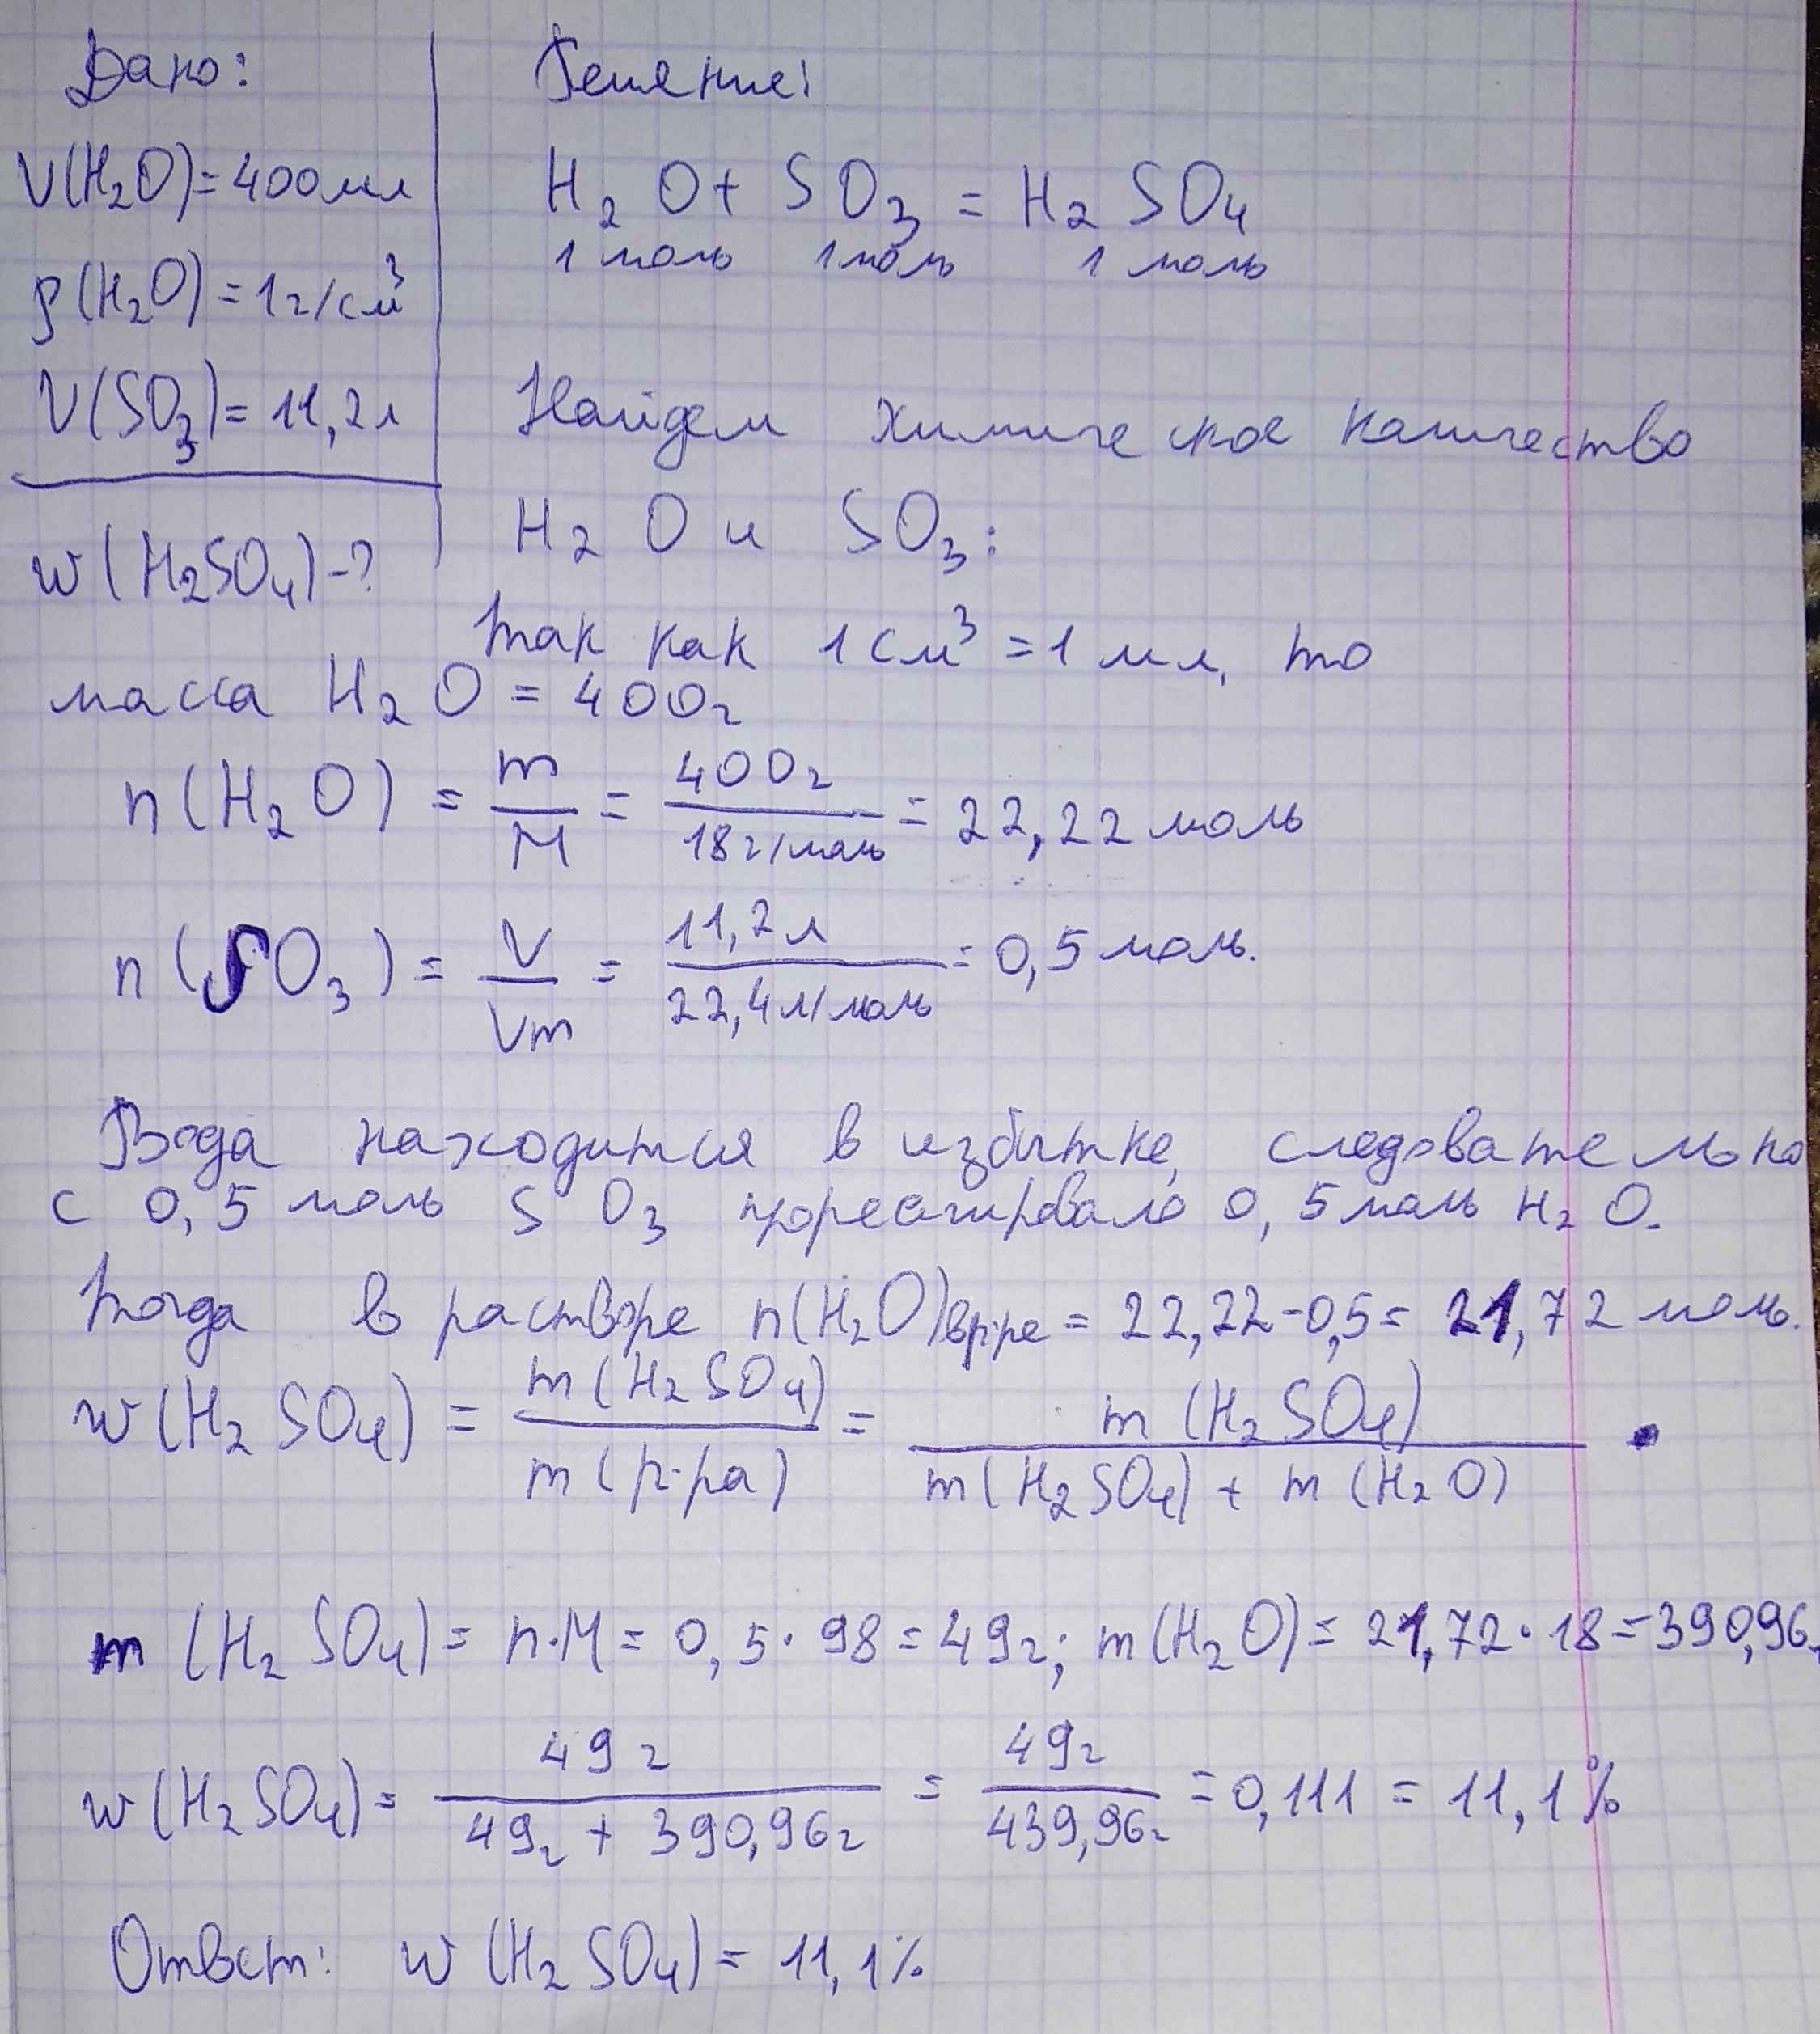 Дано:
V(H₂O)=400мл
ρ(H₂O)=1г/см³
V(SO₃)=11,2л
w(H₂SO₄)-?
Решение:
H₂O + SO₃ = H₂SO₄
1 моль 1моль 1 моль
Найдем химическое количество
H₂O и SO₃:
так как 1 см³ = 1 мл, то
масса H₂O = 400г
n(H₂O) = m/M = 400г/18г/моль = 22,22 моль
n(SO₃) = V/Vm = 11,2л/22,4л/моль = 0,5 моль.
Вода находится в избытке, следовательно
с 0,5 моль SO₃ прореагировало 0,5 моль H₂O.
Тогда в растворе n(H₂O)в р-ре = 22,22-0,5 = 21,72 моль.
w(H₂SO₄) = m(H₂SO₄)/m(р-ра) = m(H₂SO₄)/m(H₂SO₄) + m(H₂O) .
m(H₂SO₄) = n·M = 0,5·98 = 49г; m(H₂O) = 21,72·18 = 390,96г
w(H₂SO₄) = 49г/49г + 390,96г = 49г/439,96г = 0,111 = 11,1%
Ответ: w(H₂SO₄) = 11,1%